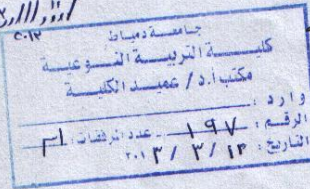 جامعة دمياط
كلية التربية النوعية
مكتب أ.د / عميد الكلية
وارد :
الرقم : ١٩٧ عدد المرفقات :
التاريخ : ١٣ / ٣ / ٢٠١٣